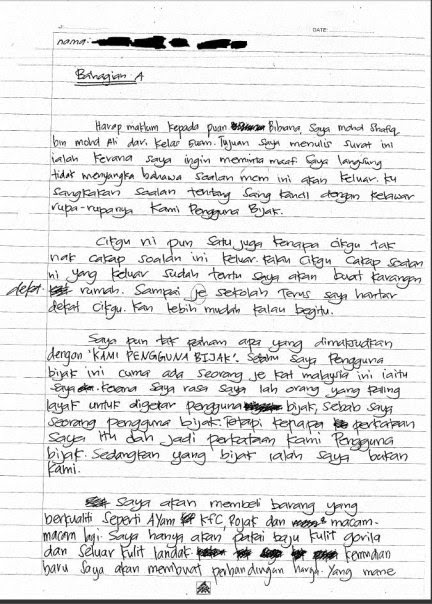 DATE:
nama:
Bahagian A
Harap maklum kepada puan Bibiana, Saya Mohd Shafiq
bin Mohd Ali dari kelas Enam. Tujuan saya menulis surat ini
ialah kerana saya ingin meminta maaf. Saya langsung
tidak menyangka bahawa soalan mcm ini akan keluar. Ku
sangkakan soalan tentang Sang kancil dengan kelawar
rupa-rupanya Kami Pengguna Bijak.
Cikgu ni pun satu juga kenapa cikgu tak
nak cakap soalan ini keluar. Kalau cikgu cakap soalan
ni yang keluar sudah tentu saya akan buat karangan
dekat rumah. Sampai je sekolah terus saya hantar
dekat cikgu. Kan lebih mudah kalau begitu.
Saya pun tak paham apa yang dimaksudkan
dengan "KAMI PENGGUNA BIJAK". Setahu saya Pengguna
bijak ini cuma ada seorang je kat malaysia ini iaitu
saya. Kerana saya rasa saya lah orang yang paling
layak untuk digelar pengguna bijak, Sebab saya
seorang pengguna bijak. Tetapi kenapa perkataan
saya itu dah jadi perkataan kami Pengguna
bijak. Sedangkan yang bijak ialah saya bukan
kami.
Saya akan membeli barang yang
berkualiti seperti Ayam KFC, Rojak dan macam-
macam lagi. Saya hanya akan pakai baju kulit gorila
dan seluar kulit landak kemudian
baru saya akan membuat perbandingan harga. Yang mane